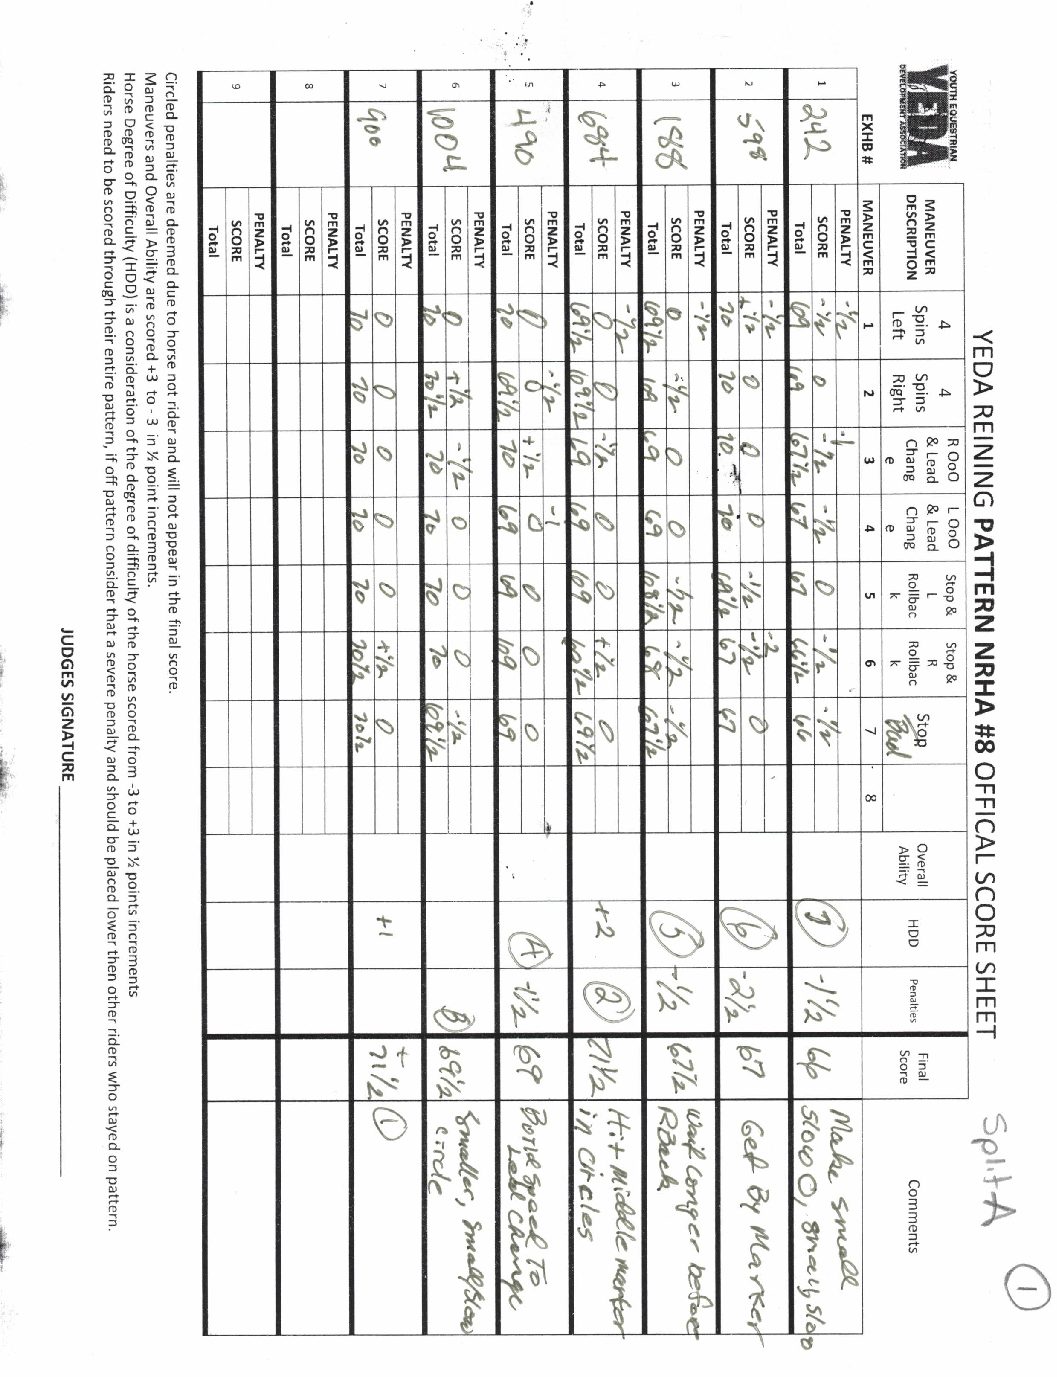 YOUTH EQUESTRIAN
YEDA
DEVELOPMENT ASSOCIATION
YEDA REINING PATTERN NRHA #8 OFFICAL SCORE SHEET
Split A
1
EXHB # MANEUVER DESCRIPTION 4 Spins Left 4 Spins Right R OoO & Lead Chang e L OoO & Lead Chang e Stop & L Rollbac k Stop & R Rollbac k Stop Overall Ability HDD Penalties Final Score Comments
MANEUVER 1 2 3 4 5 6 7 8
1 242
PENALTY -1/2 -1
SCORE -1/2 0 -1/2 -1/2 0 -1/2 -1/2
Total 69 69 67 1/2 67 67 66 1/2 66
-1 1/2 66 Make small slow O, small, slow
2 598
PENALTY -1/2 -2
SCORE +1/2 0 0 0 -1/2 -1/2 0
Total 70 70 70 70 69 1/2 67 67
6 -2 1/2 67 Get By Marker
3 188
PENALTY -1/2
SCORE 0 -1/2 0 0 -1/2 -1/2 -1/2
Total 69 1/2 69 69 69 68 1/2 68 67 1/2
5 -1/2 67 1/2 Wait Longer before RBack
4 684
PENALTY -1/2
SCORE 0 0 -1/2 0 0 +1/2 0
Total 69 1/2 69 1/2 69 69 69 69 1/2 69 1/2
+2 2 71 1/2 Hit Middle marker in circles
5 490
PENALTY -1/2 -1
SCORE 0 0 +1/2 0 0 0 0
Total 70 69 1/2 70 69 69 69 69
4 -1 1/2 69 Build speed To Lead Change
6 1004
PENALTY
SCORE 0 +1/2 -1/2 0 0 0 -1/2
Total 70 70 1/2 70 70 70 70 69 1/2
69 1/2 Smaller, small/slow circle
7 900
PENALTY
SCORE 0 0 0 0 0 +1/2 0
Total 70 70 70 70 70 70 1/2 70 1/2
+1 + 71 1/2 1
8
PENALTY
SCORE
Total
9
PENALTY
SCORE
Total
Circled penalties are deemed due to horse not rider and will not appear in the final score.
Maneuvers and Overall Ability are scored +3 to - 3 in ½ point increments.
Horse Degree of Difficulty (HDD) is a consideration of the degree of difficulty of the horse scored from -3 to +3 in ½ points increments
Riders need to be scored through their entire pattern, if off pattern consider that a severe penalty and should be placed lower then other riders who stayed on pattern.
JUDGES SIGNATURE